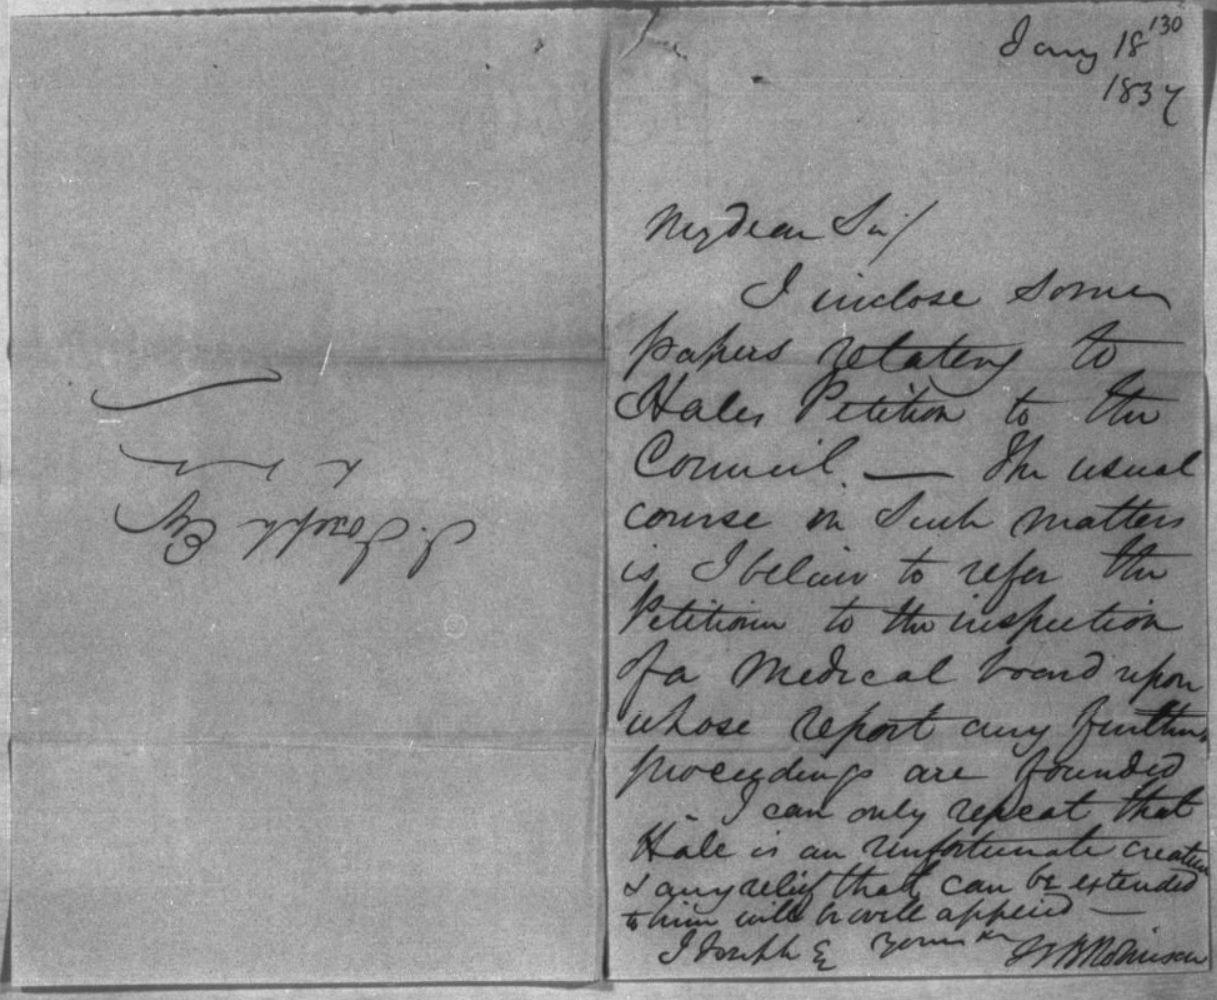 130
Jany 18
1837
My dear Sir/
I inclose some
papers relating to
Hales Petition to the
Council. — The usual
course in such matters
is I believe to refer the
Petitioner to the inspection
of a Medical board upon
whose report any further
proceedings are founded
I can only repeat that
Hale is an unfortunate creature
& any relief that can be extended
to him will be well applied —
J Joseph E Yours
W B Robinson
J. Joseph Esq